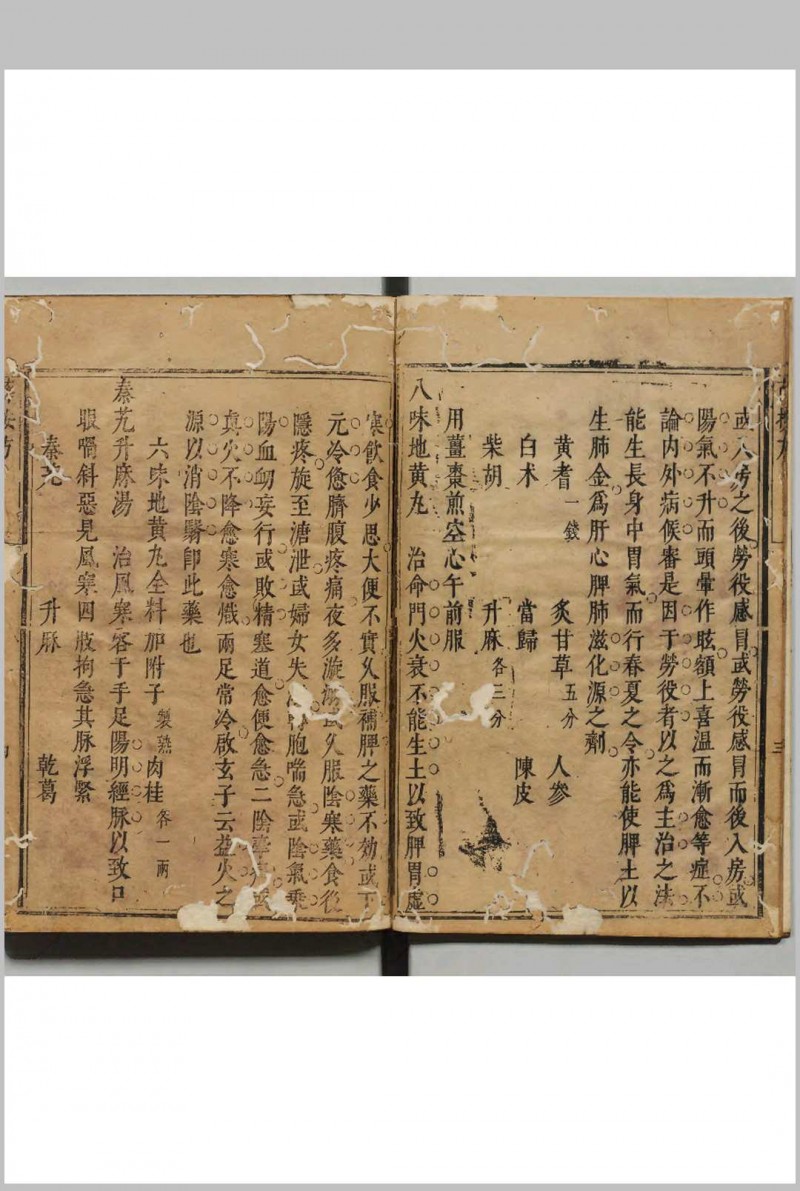 或入房之後勞役感冒或勞役感冒而後入房或
陽氣不升而頭暈作眩額上喜溫而漸愈等症不
論內外病候審是因于勞役者以之為主治之法
能生長身中胃氣而行春夏之令亦能使脾土以
生肺金爲肝心脾肺滋化源之劑
黃耆一錢 炙甘草五分 人參
白朮 當歸 陳皮
柴胡 升麻各三分
用薑棗煎空心午前服
八味地黃丸 治命門火衰不能生土以致脾胃虛
寒飲食少思大便不實久服補脾之藥不効或下
元冷憊臍腹疼痛夜多漩 或久服陰寒藥食後
隱疼旋至溏泄或婦女失 胞喘急或陰氣乘
陽血衂妄行或敗精塞道愈便愈急二陰 或
真火不降愈寒愈熾兩足常冷啟玄子云益火之
源以消陰翳卽此藥也
六味地黃丸全料加附子製熟肉桂各一兩
秦艽升麻湯 治風寒客于手足陽明經脉以致口
眼喎斜惡見風寒四肢拘急其脉浮緊
秦艽 升麻 乾葛
三